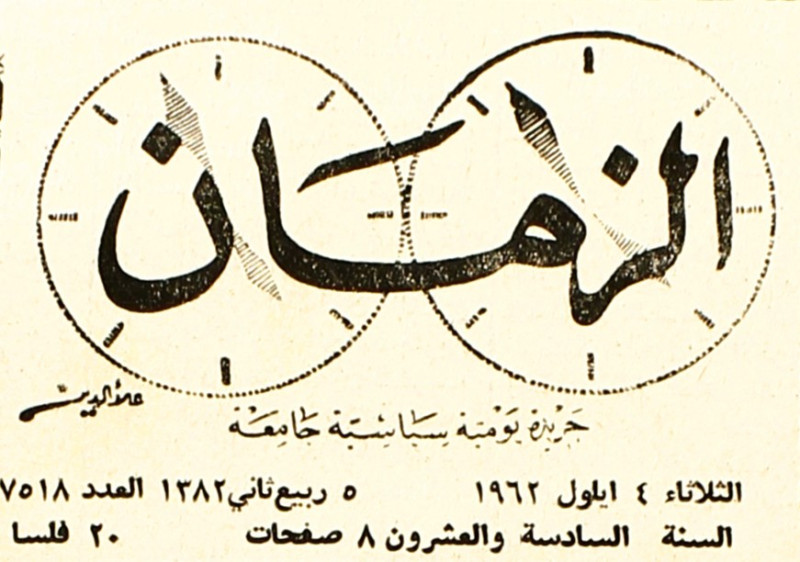 الزمان
علاءالدين
جريدة يومية سياسية جامعة
الثلاثاء ٤ ايلول ١٩٦٢ ٥ ربيع ثاني ١٣٨٢ العدد ٧٥١٨
السنة السادسة والعشرون ٨ صفحات ٢٠ فلسا